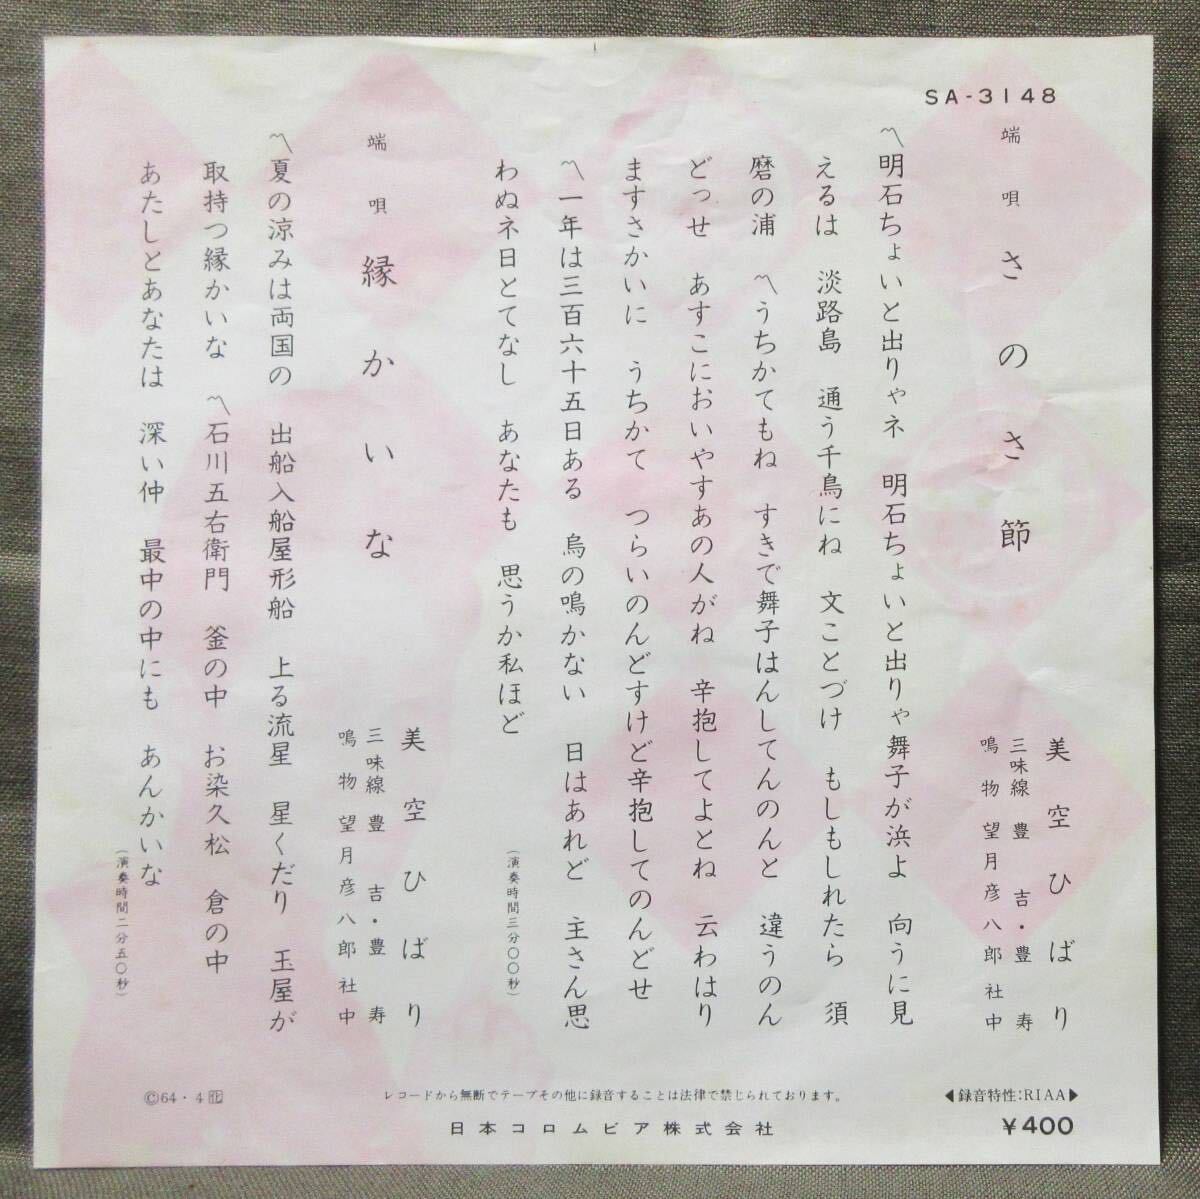 SA-3148
端唄 さのさ節
美空ひばり
三味線 豊吉・豊寿
鳴物 望月彦八郎社中
〽明石ちょいと出りゃネ 明石ちょいと出りゃ舞子が浜よ 向うに見
えるは 淡路島 通う千鳥にね 文ことづけ もしもしれたら 須
磨の浦 〽うちかてもね すきで舞子はんしてんのんと 違うのん
どっせ あすこにおいやすあの人がね 辛抱してよとね 云わはり
ますさかいに うちかて つらいのんどすけど辛抱してのんどせ
〽一年は三百六十五日ある 烏の鳴かない 日はあれど 主さん思
わぬネ日とてなし あなたも 思うか私ほど
(演奏時間三分〇〇秒)
端唄 縁かいな
美空ひばり
三味線 豊吉・豊寿
鳴物 望月彦八郎社中
〽夏の涼みは両国の 出船入船屋形船 上る流星 星くだり 玉屋が
取持つ縁かいな 〽石川五右衛門 釜の中 お染久松 倉の中
あたしとあなたは 深い仲 最中の中にも あんかいな
(演奏時間二分五〇秒)
Ⓒ64・4
レコードから無断でテープその他に録音することは法律で禁じられております。
◀録音特性:RIAA▶
日本コロムビア株式会社
¥400